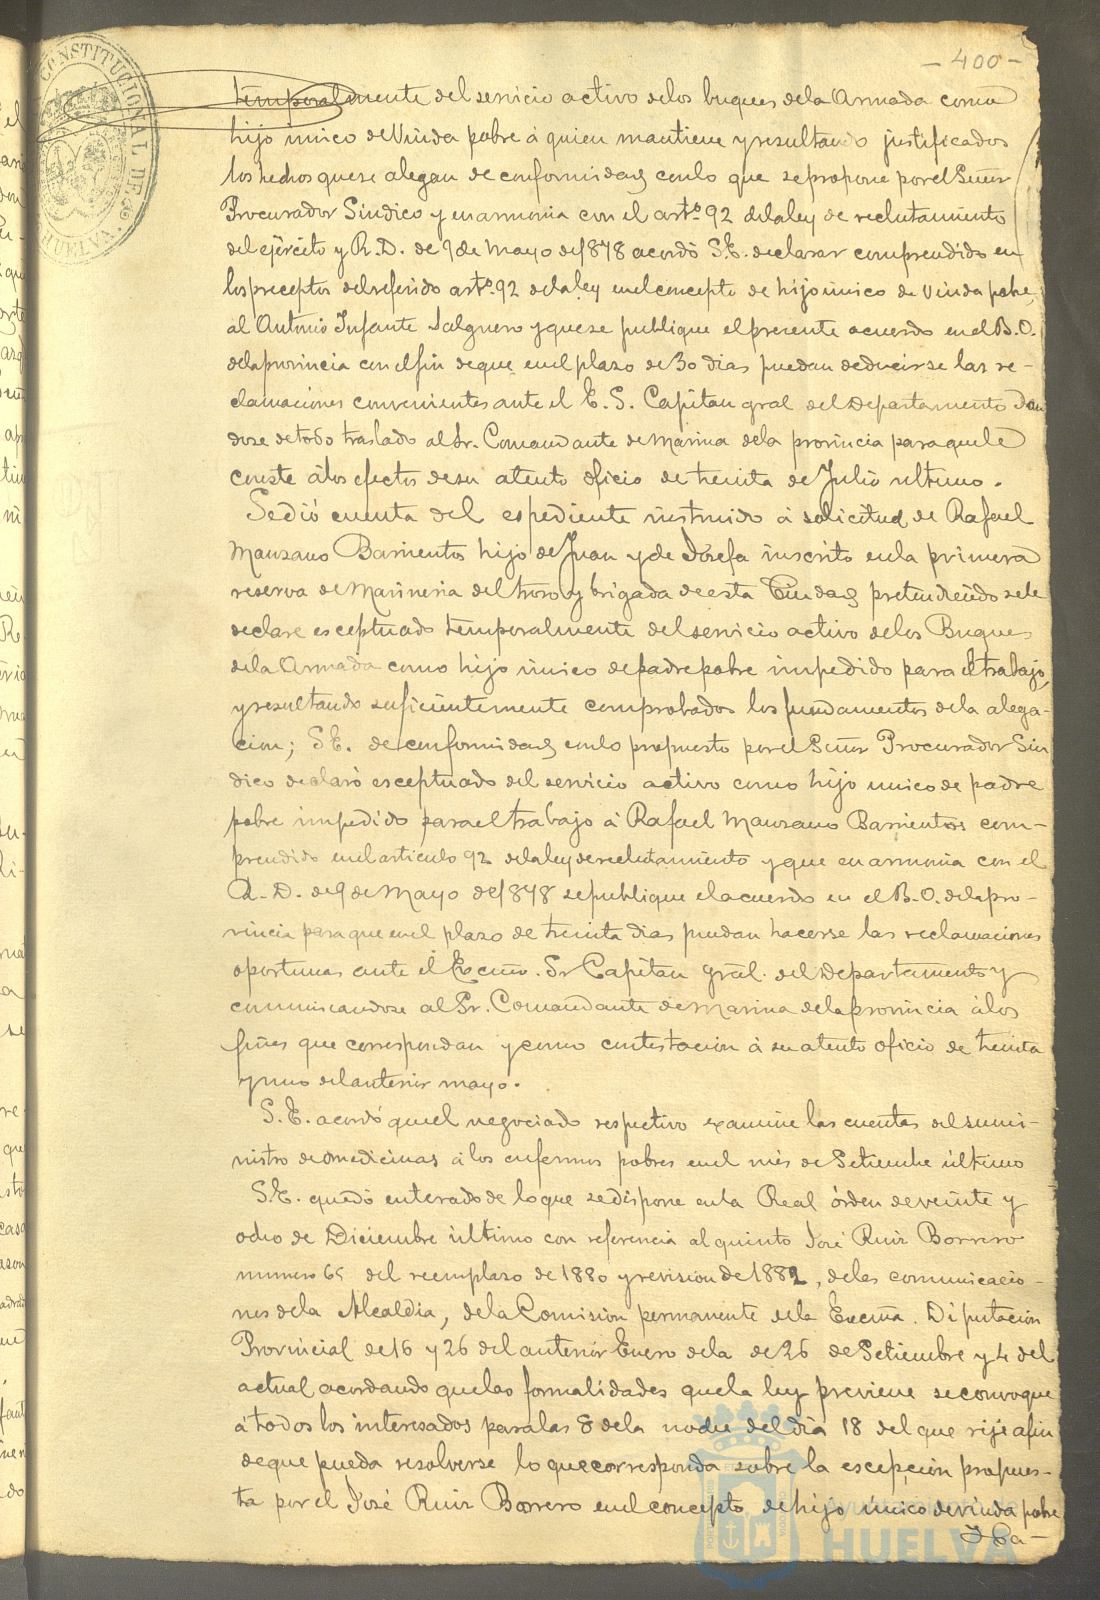 - 400 -
CONSTITUCIONAL DE
HUELVA
temporalmente del servicio activo de los buques de la Armada como
hijo único de Viuda pobre á quien mantiene y resultando justificados
los hechos que se alegan de conformidad con lo que se propone por el Señor
Procurador Síndico y en armonia con el artº. 92 de la ley de reclutamiento
del ejército y R. D. de 9 de Mayo de 1878 acordó S.E. declarar comprendido en
los preceptos del referido artº. 92 de la ley en el concepto de hijo único de Viuda pobre,
al Antonio Infante Salguero y que se publique el presente acuerdo en el B.O.
de la provincia con el fin de que en el plazo de 30 dias puedan deducirse las re-
clamaciones convenientes ante el E. S. Capitan gral del Departamento dan
dose de todo traslado al Sr. Comandante de Marina de la provincia para que le
conste á los efectos de su atento oficio de treinta de Julio ultimo.
Se dió cuenta del espediente instruido á solicitud de Rafael
Manzano Barrientos hijo de Juan y de Josefa inscrito en la primera
reserva de Marineria del trozo y brigada de esta Ciudad pretendiendo se le
declare esceptuado temporalmente del servicio activo de los Buques
de la Armada como hijo único de padre pobre impedido para el trabajo,
y resultando suficientemente comprobados los fundamentos de la alega-
cion; S.E. de conformidad con lo propuesto por el Señor Procurador Sin
dico declaró esceptuado del servicio activo como hijo unico de padre
pobre impedido para el trabajo á Rafael Manzano Barrientos com-
prendido en el articulo 92 de la ley de reclutamiento y que en armonia con el
R. D. de 9 de Mayo de 1878 se publique el acuerdo en el B.O. de la pro-
vincia para que en el plazo de treinta dias puedan hacerse las reclamaciones
oportunas ante el Excmo. Sr Capitan gral. del Departamento y
comunicandose al Sr. Comandante de Marina de la provincia á los
fines que correspondan y como contestacion á su atento oficio de treinta
y uno del anterior mayo.
S.E. acordó que el negociado respectivo examine las cuentas del sumi-
nistro de medicinas á los enfermos pobres en el mes de Setiembre último
S.E. quedó enterado de lo que se dispone en la Real órden de veinte y
ocho de Diciembre último con referencia al quinto José Ruiz Borrero
numero 65 del reemplazo de 1880 y revision de 1882, de las comunicacio-
nes de la Alcaldia, de la Comision permanente de la Excma. Diputacion
Provincial de 16 y 26 del anterior Enero de la de 26 de Setiembre y 4 del
actual acordando que las formalidades que la ley previene se convoque
á todos los interesados para las 8 de la noche del dia 18 del que rije afin
de que pueda resolverse lo que corresponda sobre la escepcion propues-
ta por el José Ruiz Borrero en el concepto de hijo único de viuda pobre
Ayuntamiento de
HUELVA